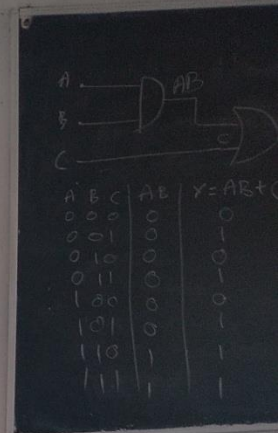 A AB
B
C C
A B C AB Y = AB + C
0 0 0 0 0
0 0 1 0 1
0 1 0 0 0
0 1 1 0 1
1 0 0 0 0
1 0 1 0 1
1 1 0 1 1
1 1 1 1 1